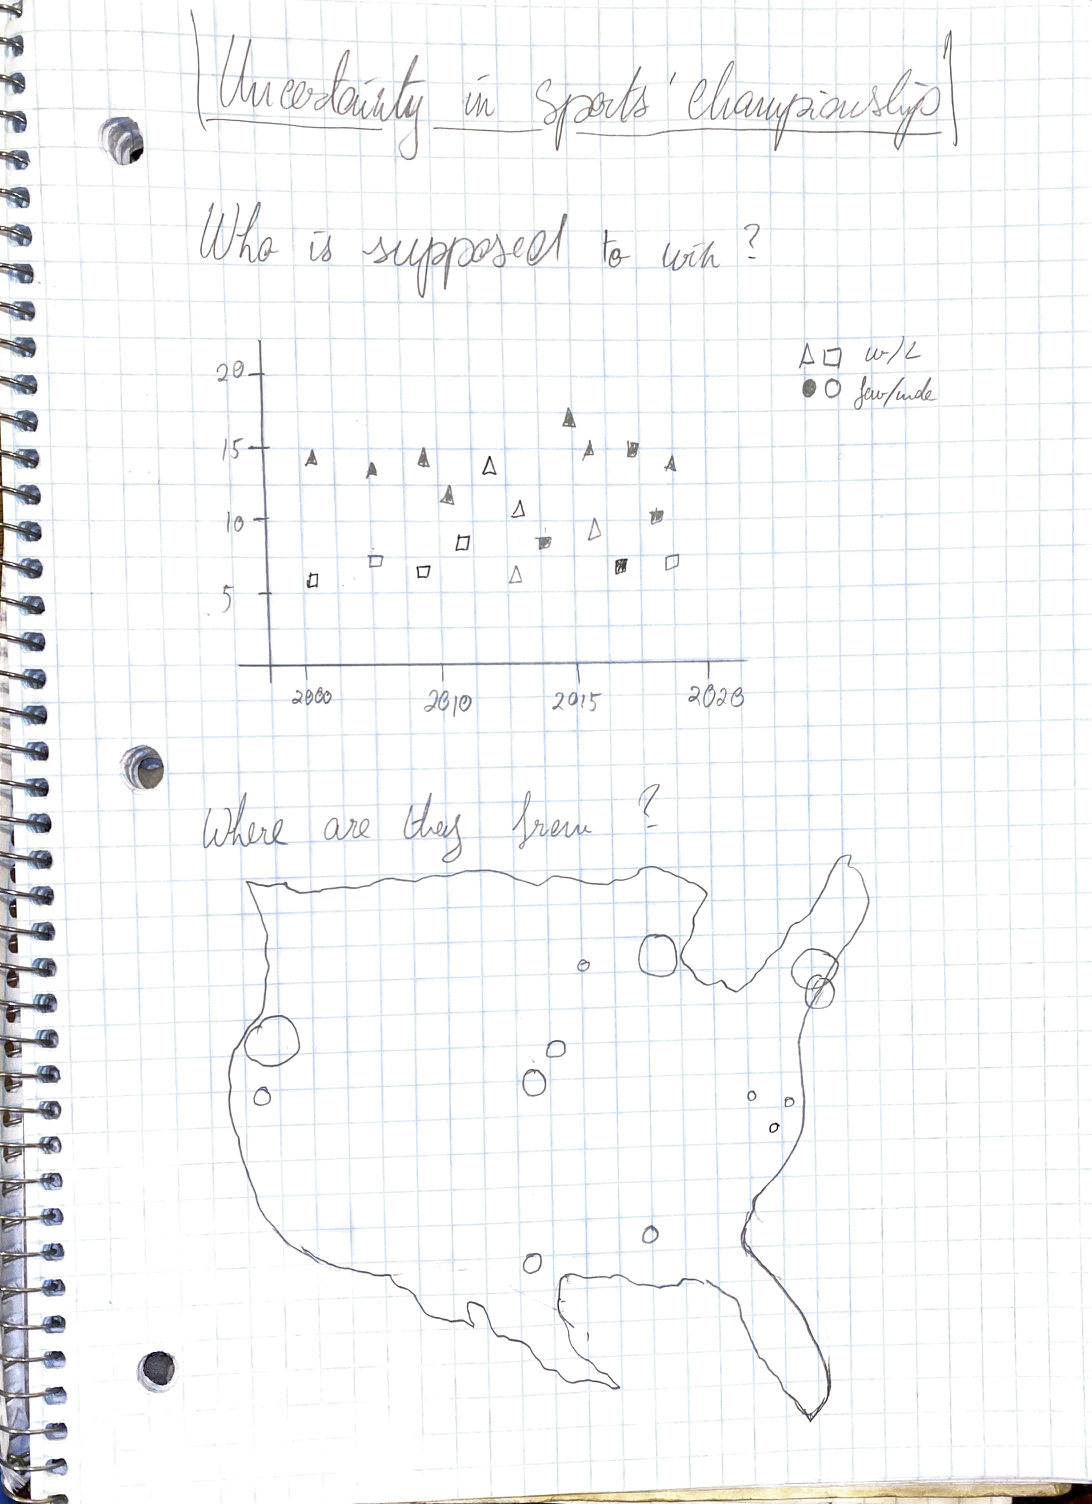 Uncertainty in Sports' Championship
Who is supposed to win ?
20
15
10
5
2000 2010 2015 2020
W/L
fav/unde
Where are they from ?